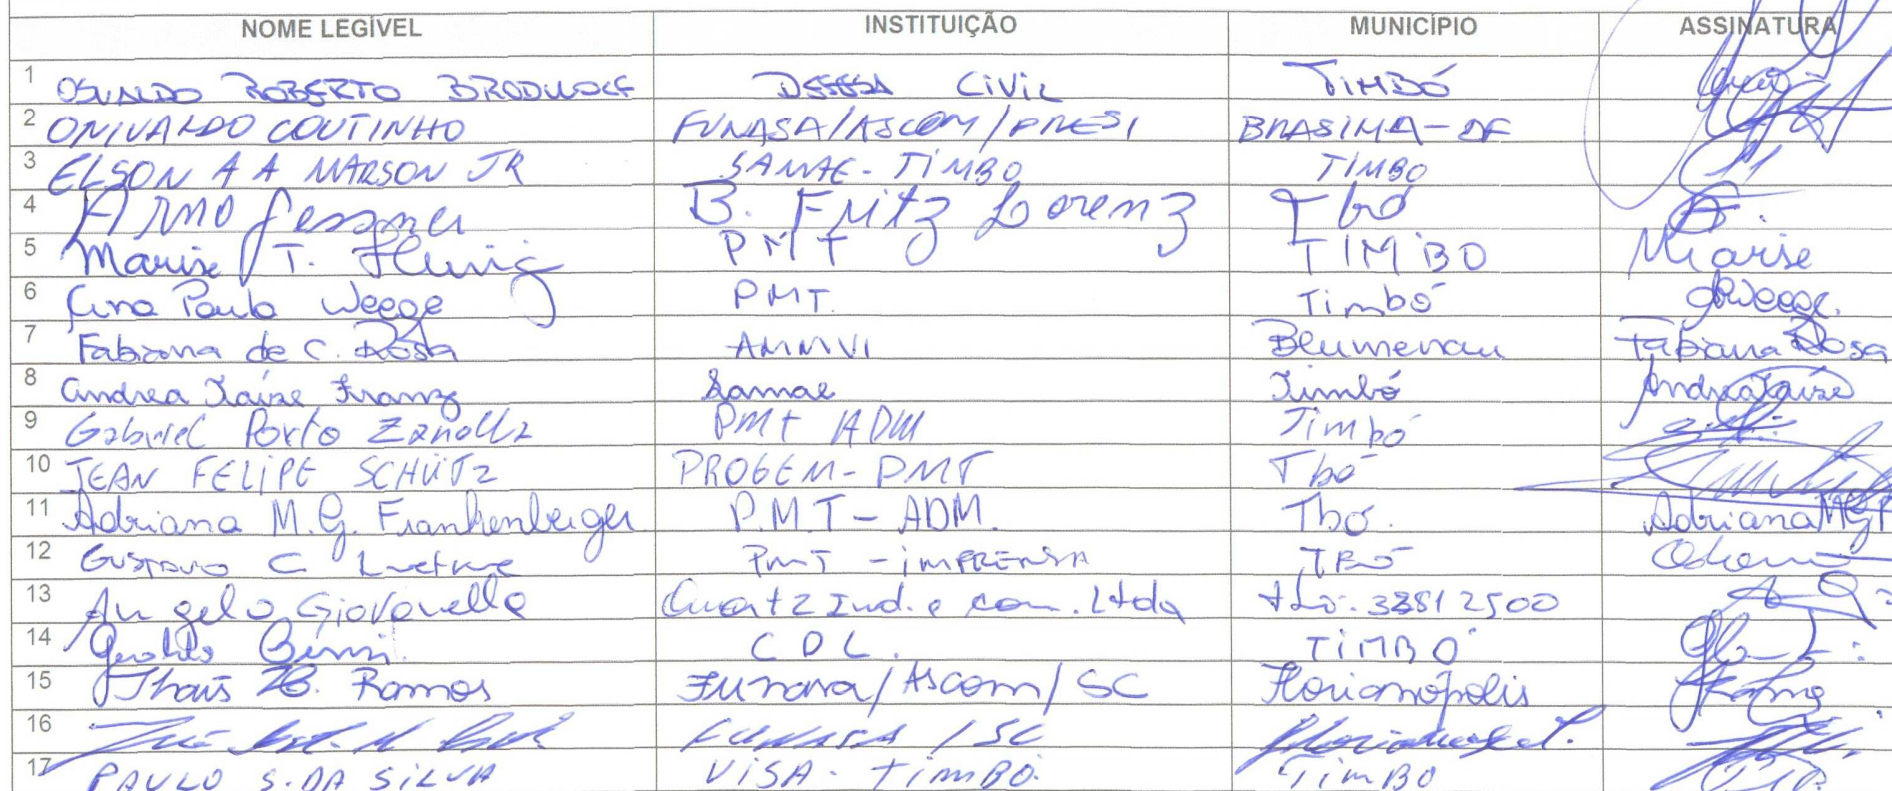 NOME LEGÍVEL INSTITUIÇÃO MUNICÍPIO ASSINATURA
1 OSVALDO ROBERTO BRODWOLF DEFESA CIVIL TIMBÓ
2 ONIVALDO COUTINHO FUNASA/ASCOM/PRESI BRASILIA-DF
3 ELSON A A MARSON JR SAMAE-TIMBO TIMBO
4 Arno Gessner B. Fritz Lorenz Tbó
5 Marise T. PMT TIMBO Marise
6 Ana Paula Weege PMT. Timbó
7 Fabiana de C. Rosa AMMVI Blumenau Fabiana Rosa
8 Andrea Taise Franz Samae Timbó Andrea Taise
9 Gabriel Porto Zanella PMT ADM Timbó
10 JEAN FELIPE SCHÜTZ PROGEM-PMT Tbó
11 Adriana M.G. Frankenberger P.M.T-ADM. Tbó. Adriana MGF
12 GUSTAVO C Luetke PMT - IMPRENSA TBÓ
13 Angelo Giovanella Quartz Ind. e com. Ltda 33812500
14 C D L. TIMBÓ
15 Thais B. Ramos Funasa/Ascom/SC Florianópolis
16 FUNASA /SC
17 PAULO S. DA SILVA VISA. TIMBÓ. TIMBO